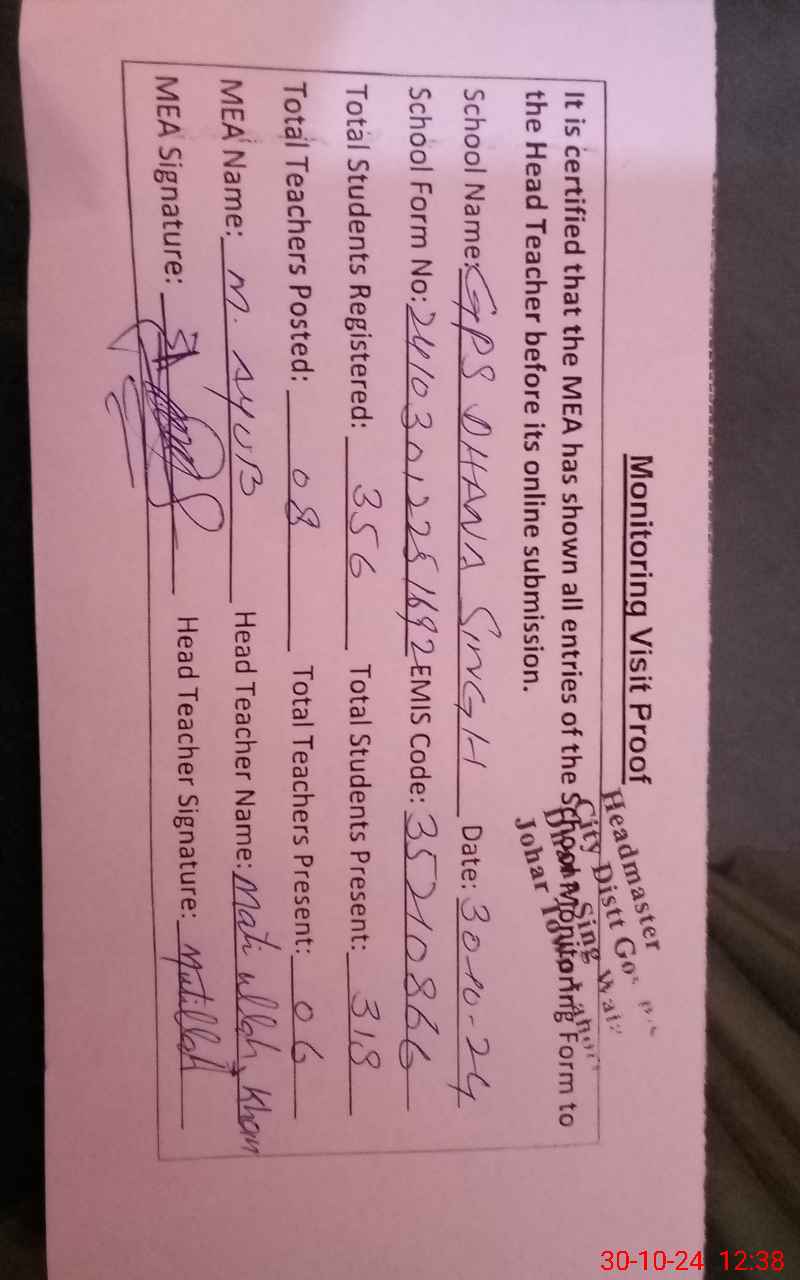 Monitoring Visit Proof
Headmaster
City Distt Go
Sing Wal
Johar Town
It is certified that the MEA has shown all entries of the School Monitoring Form to
the Head Teacher before its online submission.
School Name: GPS DHANA SINGH Date: 30-10-24
School Form No: EMIS Code: 35210866
Total Students Registered: 356 Total Students Present: 318
Total Teachers Posted: 08 Total Teachers Present: 06
MEA Name: M. AYUB Head Teacher Name: Mati ullah Khan
MEA Signature: Head Teacher Signature: Matiullah
30-10-24 12:38